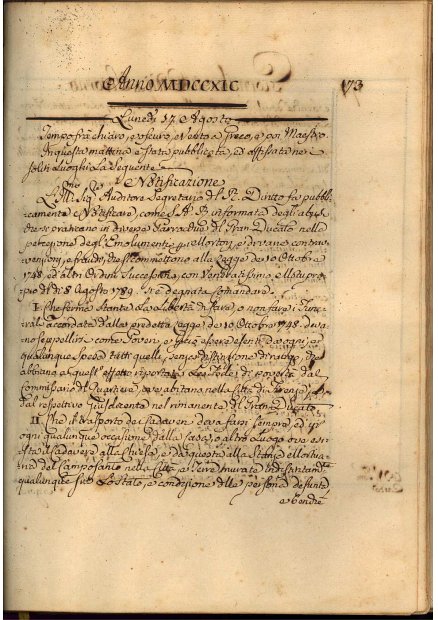 Anno MDCCXIC 173
Lunedì 17 Agosto
Tempo frà chiaro, e oscuro, e Vento a Greco, e poi Maestro
In questa mattina è stata pubblicata, ed affissata nei
soliti Luoghi la seguente
Notificazione
Auditore Segretario del R. Diritto fà pubbli-
camente Notificare, come S. A. R. informata degli abusi
che si praticano in diverse del Gran Ducato nella
percezione degl'Emolumenti mortori, e di varie contra-
venzioni, e frodi, che si commettono alla Legge de 10 Ottobre
1748, ed altri Ordini Successivi, con Veneratissimo
prio del dì 8 Agosto 1789. si è degnata comandare
I. Che ferma stante la Libertà di fare, o non fare i Fune-
rali accordata dalla predetta Legge de 10 Ottobre 1748. deva-
no seppellirsi come Poveri, e esenti da ogni, e
qualunque spesa tutti quelli, senza distinzione di rango, che
abbiano a quest'effetto riportata la Fede di povertà dal
Commissario di Quartiere, se abitano nella Città di Firenze,
dal respettivo Giusdicente nel rimanente del Gran Ducato
II. Che il trasporto dei Cadaveri deva farsi sempre, ed in
ogni qualunque occasione dalla Casa, o altro Luogo ove esi-
sta il Cadavere alla Chiesa, e da questa alla Stanza
del Campo santo nelle Città, e Terre murate indistintamente
qualunque sia lo stato, e condizione della persona defunta